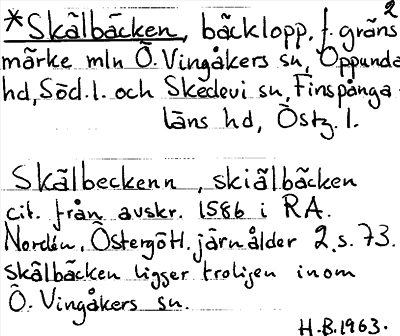 *Skälbäcken, bäcklopp, f. gräns2
märke mln Ö. Vingåkers sn, Oppunda
hd, Södl. l. och Skedevi sn, Finspånga
läns hd, Östg. l.
Skälbeckenn, skiälbäcken
cit. från avskr. 1586 i RA.
Nordén, Östergötl. järnålder 2, s. 73.
Skälbäcken ligger troligen inom
Ö. Vingåkers sn.
H.B. 1963.